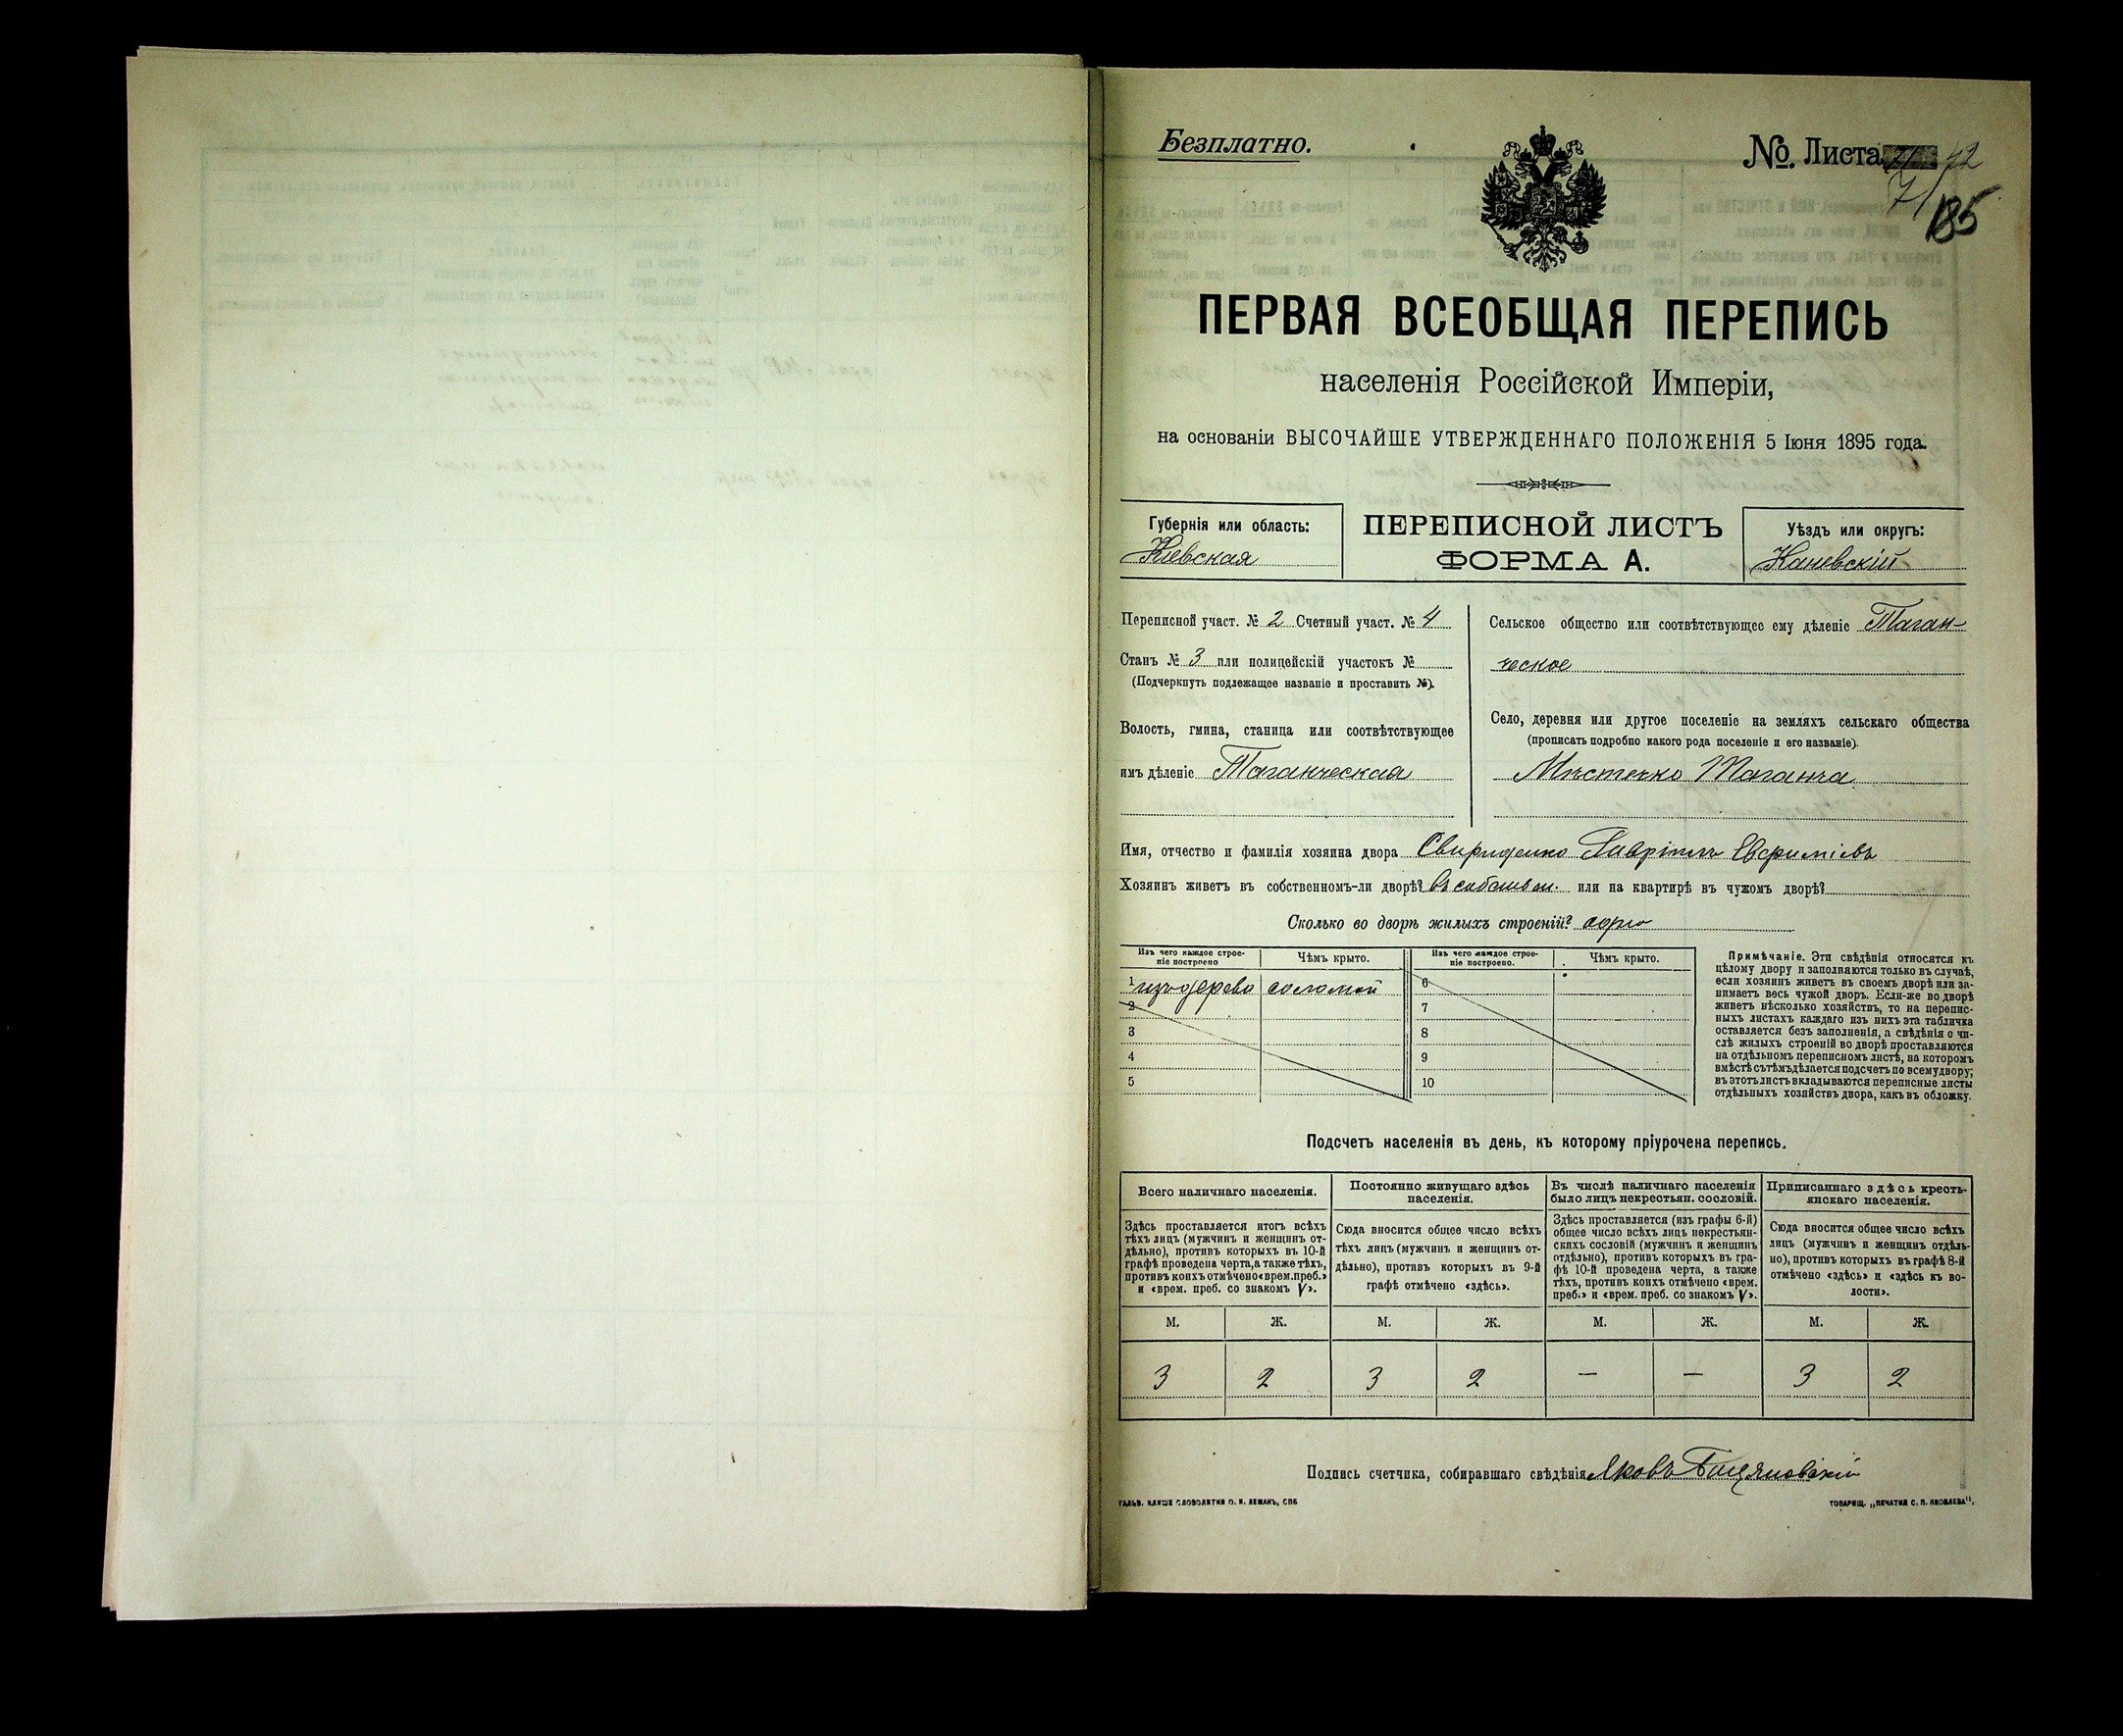 Безплатно.
№. Листа 42
7/185
ПЕРВАЯ ВСЕОБЩАЯ ПЕРЕПИСЬ
населенія Россійской Имперіи,
на основаніи ВЫСОЧАЙШЕ УТВЕРЖДЕННАГО ПОЛОЖЕНІЯ 5 Іюня 1895 года.
Губернія или область:
Кіевская
ПЕРЕПИСНОЙ ЛИСТЪ
ФОРМА А.
Уѣздъ или округъ:
Каневскій
Переписной участ. № 2 Счетный участ. № 4
Станъ № 3 или полицейскій участокъ №
(Подчеркнуть подлежащее названіе и проставить №).
Волость, гмина, станица или соотвѣтствующее
имъ дѣленіе Таганческая
Сельское общество или соотвѣтствующее ему дѣленіе Таган-
ческое
Село, деревня или другое поселеніе на земляхъ сельскаго общества
(прописать подробно какого рода поселеніе и его названіе).
Мѣстечко Таганча
Имя, отчество и фамилія хозяина двора Свириденко Гавріилъ Евфиміевъ
Хозяинъ живетъ въ собственномъ-ли дворѣ? въ собствен. или на квартирѣ въ чужомъ дворѣ?
Сколько во дворѣ жилыхъ строеній? одно
Изъ чего каждое строе-
ніе построено
Чѣмъ крыто.
Изъ чего каждое строе-
ніе построено.
Чѣмъ крыто.
1 изъ дерева соломой
2
3
4
5
6
7
8
9
10
Примѣчаніе. Эти свѣдѣнія относятся къ
цѣлому двору и заполняются только въ случаѣ,
если хозяинъ живетъ въ своемъ дворѣ или за-
нимаетъ весь чужой дворъ. Если-же во дворѣ
живетъ нѣсколько хозяйствъ, то на перепис-
ныхъ листахъ каждаго изъ нихъ эта табличка
оставляется безъ заполненія, а свѣдѣнія о чи-
слѣ жилыхъ строеній во дворѣ проставляются
на отдѣльномъ переписномъ листѣ, на которомъ
вмѣстѣ съ тѣмъ дѣлается подсчетъ по всему двору;
въ этотъ листъ вкладываются переписные листы
отдѣльныхъ хозяйствъ двора, какъ въ обложку.
Подсчетъ населенія въ день, къ которому пріурочена перепись.
Всего наличнаго населенія.
Здѣсь проставляется итогъ всѣхъ
тѣхъ лицъ (мужчинъ и женщинъ от-
дѣльно), противъ которыхъ въ 10-й
графѣ проведена черта, а также тѣхъ,
противъ коихъ отмѣчено «врем. преб.»
и «врем. преб. со знакомъ V».
Постоянно живущаго здѣсь
населенія.
Сюда вносится общее число всѣхъ
тѣхъ лицъ (мужчинъ и женщинъ от-
дѣльно), противъ которыхъ въ 9-й
графѣ отмѣчено «здѣсь».
Въ числѣ наличнаго населенія
было лицъ некрестьян. сословій.
Здѣсь проставляется (изъ графы 6-й)
общее число всѣхъ лицъ некрестьян-
скихъ сословій (мужчинъ и женщинъ
отдѣльно), противъ которыхъ въ гра-
фѣ 10-й проведена черта, а также
тѣхъ, противъ коихъ отмѣчено «врем.
преб.» и «врем. преб. со знакомъ V».
Приписаннаго здѣсь кресть-
янскаго населенія.
Сюда вносится общее число всѣхъ
лицъ (мужчинъ и женщинъ отдѣль-
но), противъ которыхъ въ графѣ 8-й
отмѣчено «здѣсь» и «здѣсь къ во-
лости».
М. Ж. М. Ж. М. Ж. М. Ж.
3 2 3 2 — — 3 2
Подпись счетчика, собиравшаго свѣдѣнія Яковъ
ГАЛЬВ. КЛИШЕ СЛОВОЛИТНИ О. И. ЛЕМАНЪ, СПБ
ТОВАРИЩ. „ПЕЧАТНЯ С. П. ЯКОВЛЕВА“.